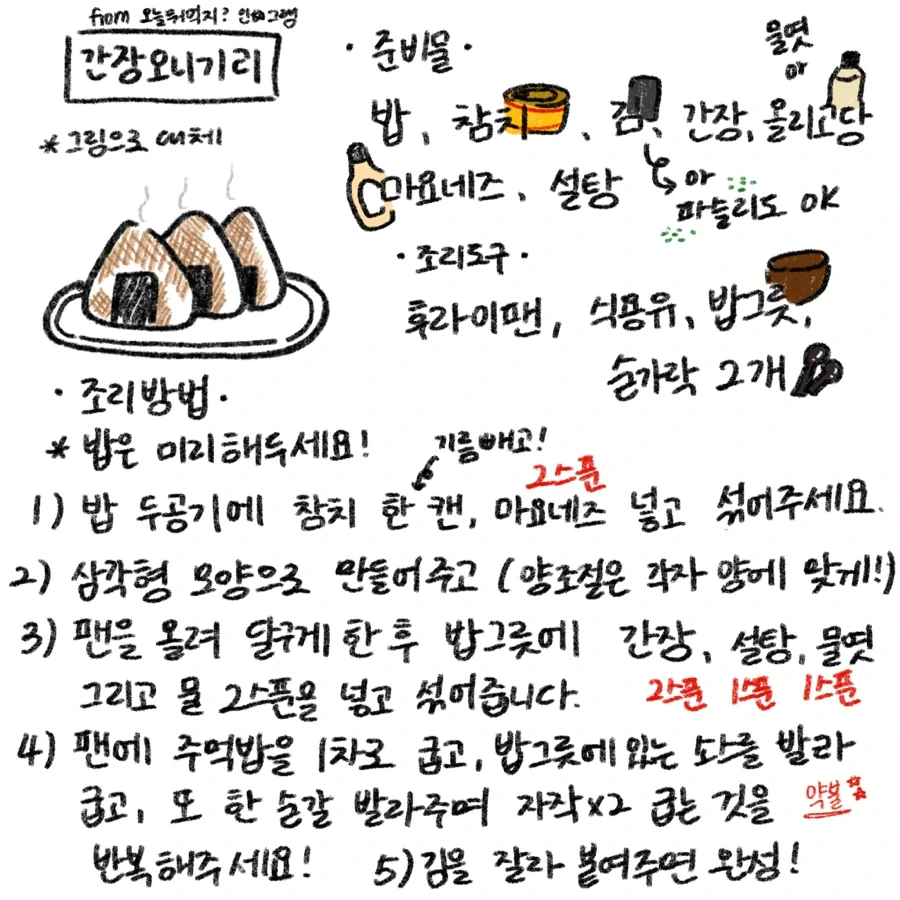 from 오늘뭐먹지? 인스타그램
간장오니기리
*그림으로 대체
·준비물·
물엿
or
밥, 참치, 김, 간장, 올리고당
마요네즈, 설탕
or
파슬리도 OK
·조리도구·
후라이팬, 식용유, 밥그릇,
숟가락 2개
·조리방법·
* 밥은 미리해두세요!
기름빼고!
2스푼
1) 밥 두공기에 참치 한 캔, 마요네즈 넣고 섞어주세요.
2) 삼각형 모양으로 만들어주고 (양조절은 각자 양에 맞게!)
3) 팬을 올려 달구게 한 후 밥그릇에 간장, 설탕, 물엿
그리고 물 2스푼을 넣고 섞어줍니다. 2스푼 1스푼 1스푼
4) 팬에 주먹밥을 1차로 굽고, 밥그릇에 있는 소스를 발라
굽고, 또 한 숟갈 발라주며 자작x2 굽는 것을 약불
반복해주세요! 5) 김을 잘라 붙여주면 완성!